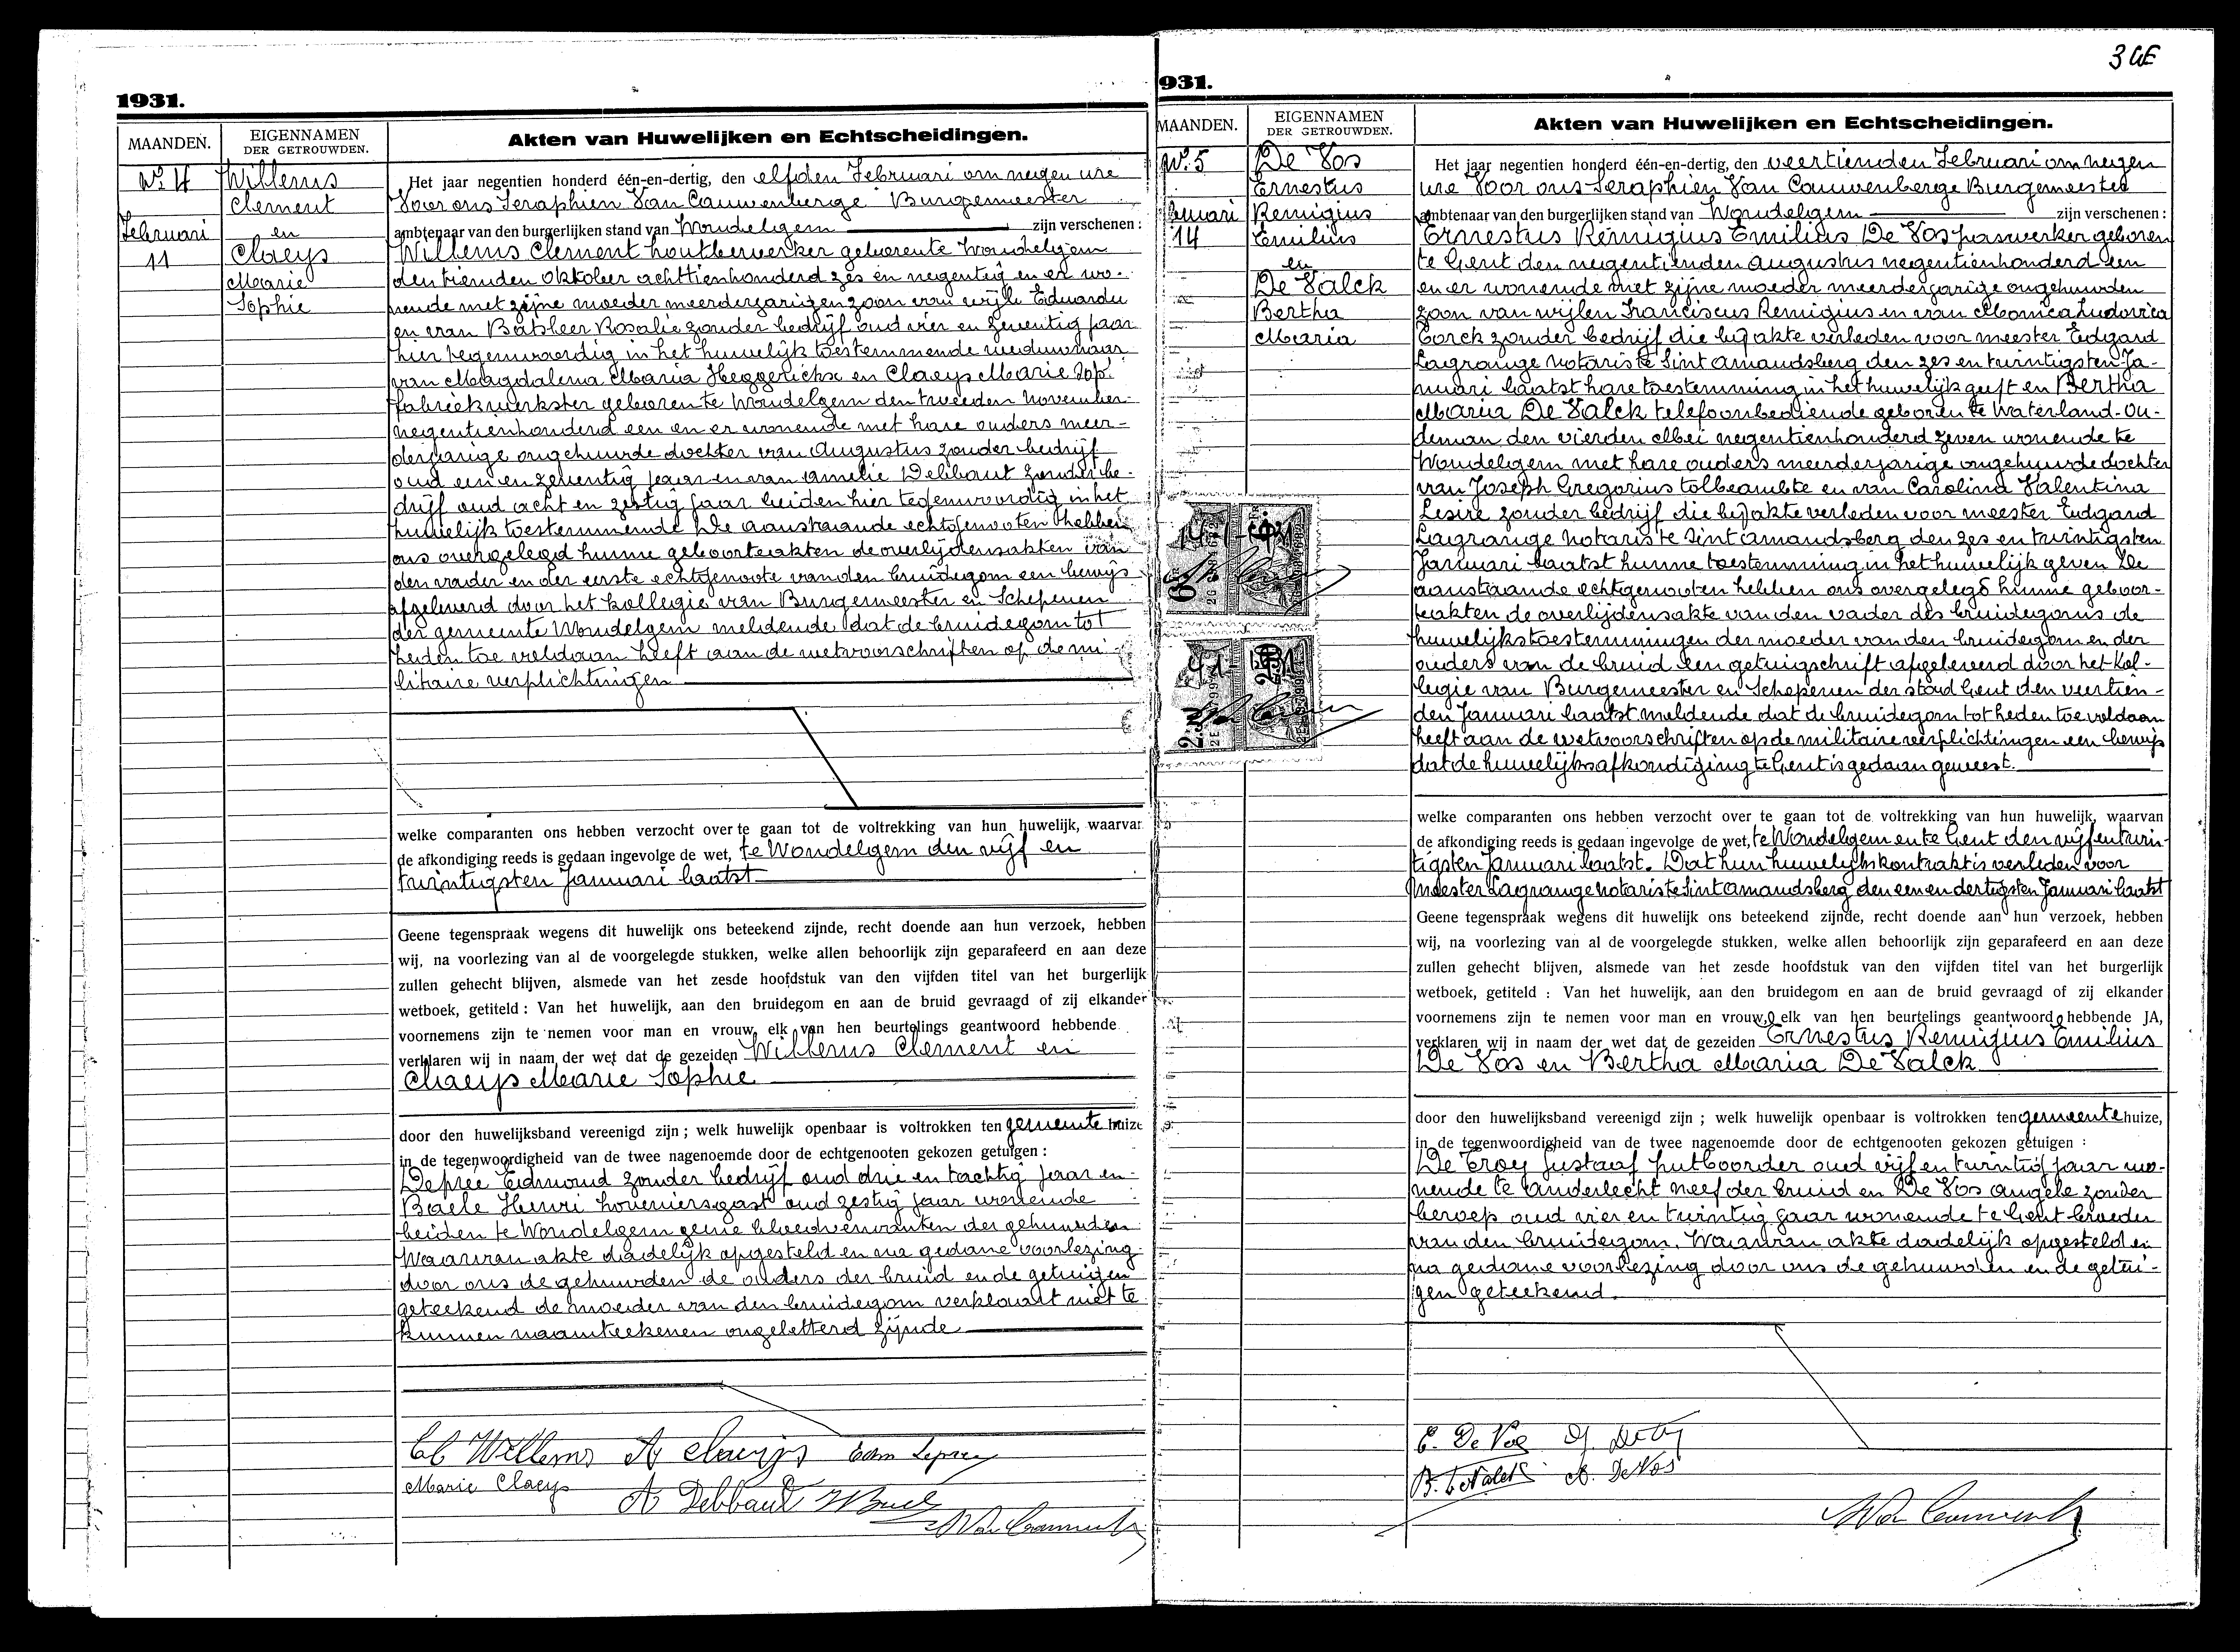 1931.
MAANDEN.
EIGENNAMEN
DER GETROUWDEN.
Akten van Huwelijken en Echtscheidingen.
No. 4
Februari
11
Willems
Clement
en
Claeys
Marie
Sophie
Het jaar negentien honderd één-en-dertig, den elfden Februari om negen ure
Voor ons Seraphien Van Cauwenberge Burgemeester
ambtenaar van den burgerlijken stand van Wondelgem zijn verschenen :
Willems Clement houtbewerker geboren te Wondelgem
den tienden Oktober achttienhonderd zes en negentig en er wo-
nende met zijne moeder meerderjarigen zoon van wijle Eduardu
en van Batsleer Rosalie zonder bedrijf oud vier en zeventig jaar
hier tegenwoordig in het huwelijk toestemmende weduwnaar
van Magdalena Maria Heggerickx en Claeys Marie Sop.
fabriekwerkster geboren te Wondelgem den tweeden November
negentienhonderd een en er wonende met hare ouders meer-
derjarige ongehuwde dochter van Augustus zonder bedrijf
oud een en zeventig jaar en van Amelie Debbaut zonder be-
drijf oud acht en zestig jaar beiden hier tegenwoordig in het
huwelijk toestemmende De aanstaande echtgenooten hebben
ons overgelegd hunne geboorteakten de overlijdensakten van
den vader en der eerste echtgenoote van den bruidegom een bewijs
afgeleverd door het kollegie van Burgemeester en Schepenen
der gemeente Wondelgem meldende dat de bruidegom tot
heden toe voldaan heeft aan de wetvoorschriften op de mi
litaire verplichtingen
welke comparanten ons hebben verzocht over te gaan tot de voltrekking van hun huwelijk, waarvan
de afkondiging reeds is gedaan ingevolge de wet, te Wondelgem den vijf en
twintigsten Januari laatst
Geene tegenspraak wegens dit huwelijk ons beteekend zijnde, recht doende aan hun verzoek, hebben
wij, na voorlezing van al de voorgelegde stukken, welke allen behoorlijk zijn geparafeerd en aan deze
zullen gehecht blijven, alsmede van het zesde hoofdstuk van den vijfden titel van het burgerlijk
wetboek, getiteld : Van het huwelijk, aan den bruidegom en aan de bruid gevraagd of zij elkander
voornemens zijn te nemen voor man en vrouw, elk van hen beurtelings geantwoord hebbende
verklaren wij in naam der wet dat de gezeiden Willems Clement en
Claeys Marie Sophie
door den huwelijksband vereenigd zijn ; welk huwelijk openbaar is voltrokken ten gemeente huize
in de tegenwoordigheid van de twee nagenoemde door de echtgenooten gekozen getuigen :
Deprée Edmond zonder bedrijf oud drie en tachtig jaar en
Baele Henri hoveniersgast oud zestig jaar wonende
beiden te Wondelgem geene bloedverwanten der gehuwden
Waarvan akte dadelijk opgesteld en na gedane voorlezing
door ons de gehuwden de ouders der bruid en de getuigen
geteekend de moeder van den bruidegom verklaart niet te
kunnen naamteekenen ongeletterd zijnde
Cl Willems A Claeys Edm Depree
Marie Claeys A Debbaut H Baele
Van Cauwenb
3
931.
MAANDEN.
EIGENNAMEN
DER GETROUWDEN.
Akten van Huwelijken en Echtscheidingen.
No. 5
bruari
14
De Vos
Ernestus
Remigius
Emilius
en
De Valck
Bertha
Maria
Het jaar negentien honderd één-en-dertig, den veertienden Februari om negen
ure Voor ons Seraphien Van Cauwenberge Burgemeester
ambtenaar van den burgerlijken stand van Wondelgem zijn verschenen :
Ernestus Remigius Emilius De Vos paswerker geboren
te Gent den negentienden Augustus negentienhonderd een
en er wonende met zijne moeder meerderjarige ongehuwden
zoon van wijlen Franciscus Remigius en van Monica Ludovica
Corck zonder bedrijf die bij akte verleden voor meester Edgard
Lagrange Notaris te Sint Amandsberg den zes en twintigsten Ja-
nuari laatst hare toestemming in het huwelijk geeft en Bertha
Maria De Valck telefoonbediende geboren te Waterland-Ou-
deman den vierden Mei negentienhonderd zeven wonende te
Wondelgem met hare ouders meerderjarige ongehuwde dochter
van Joseph Gregorius tolbeambte en van Carolina Valentina
Lesire zonder bedrijf die bij akte verleden voor meester Edgard
Lagrange Notaris te Sint Amandsberg den zes en twintigsten
Januari laatst hunne toestemming in het huwelijk geven De
aanstaande echtgenooten hebben ons overgelegd hunne geboor-
teakten de overlijdensakte van den vader des bruidegoms de
huwelijkstoestemmingen der moeder van den bruidegom en der
ouders van de bruid een getuigschrift afgeleverd door het Kol-
legie van Burgemeester en Schepenen der stad Gent den veertien-
den Januari laatst meldende dat de bruidegom tot heden toe voldaan
heeft aan de wetvoorschriften op de militaire verplichtingen een bewijs
dat de huwelijksafkondiging te Gent is gedaan geweest.
welke comparanten ons hebben verzocht over te gaan tot de voltrekking van hun huwelijk, waarvan
de afkondiging reeds is gedaan ingevolge de wet, te Wondelgem en te Gent den vijf en twin-
tigsten Januari laatst. Dat hun huwelijkskontrakt is verleden voor
Meester Lagrange notaris te Sint Amandsberg den een en dertigsten Januari laatst
Geene tegenspraak wegens dit huwelijk ons beteekend zijnde, recht doende aan hun verzoek, hebben
wij, na voorlezing van al de voorgelegde stukken, welke allen behoorlijk zijn geparafeerd en aan deze
zullen gehecht blijven, alsmede van het zesde hoofdstuk van den vijfden titel van het burgerlijk
wetboek, getiteld : Van het huwelijk, aan den bruidegom en aan de bruid gevraagd of zij elkander
voornemens zijn te nemen voor man en vrouw, elk van hen beurtelings geantwoord hebbende JA,
verklaren wij in naam der wet dat de gezeiden Ernestus Remigius Emilius
De Vos en Bertha Maria De Valck
door den huwelijksband vereenigd zijn ; welk huwelijk openbaar is voltrokken ten gemeente huize,
in de tegenwoordigheid van de twee nagenoemde door de echtgenooten gekozen getuigen :
De Croy Justaaf putboorder oud vijf en twintig jaar wo-
nende te Anderlecht neef der bruid en De Vos Angele zonder
beroep oud vier en twintig jaar wonende te Gent broeder
van den bruidegom. Waarvan akte dadelijk opgesteld en
na gedane voorlezing door ons de gehuwden en de getui-
gen geteekend.
E. De Vos
B. De Valck A. De Vos
Van Cauwenb